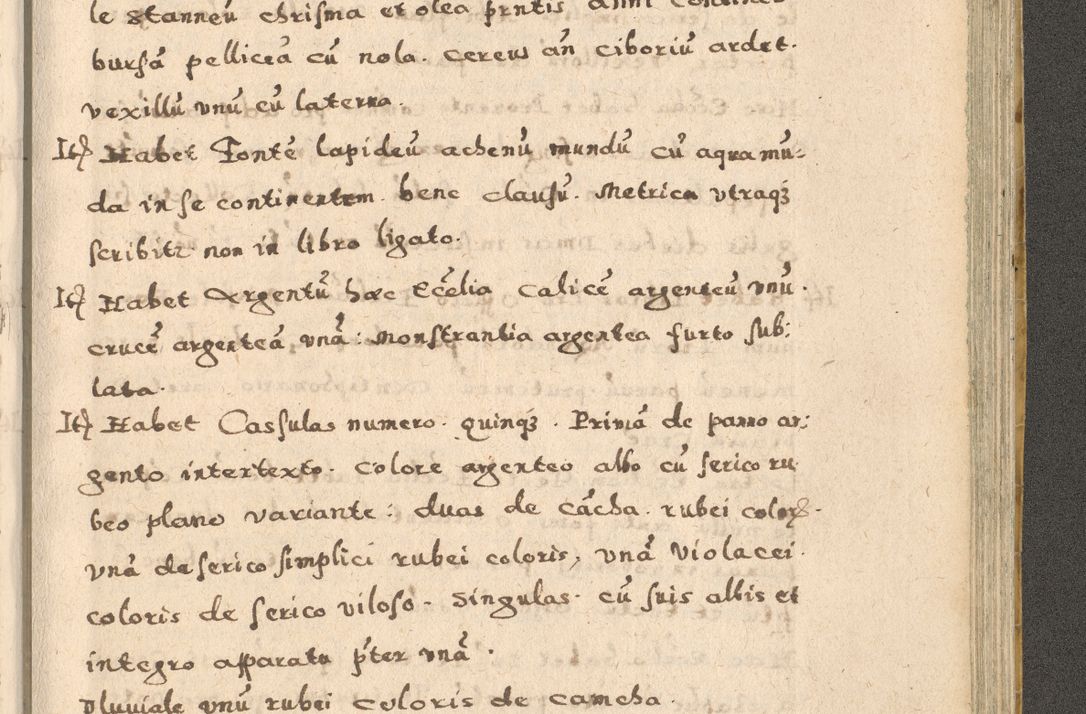 le stanneũ chrisma et olea prntis anni
bursã pelliceã cũ nola. cereus añ ciboriũ ardet.
vexillũ vnũ cũ laterna.
Itẽ Habet Fontẽ lapideũ achenũ mundũ cũ aqua mũ-
da in se continentem. bene clausũ. Metrica vtraqȝ
scribitr non in libro ligato.
Itẽ Habet Argentũ hæc Ecclĩa calicẽ argenteũ vnũ.
crucẽ argenteã, vnã: Monstrantia argentea furto sub:
lata.
Itẽ Habet Cassulas numero. quinqȝ. Primã de panno ar:
gento intertexto. colore argenteo albo cũ serico ru
beo plano variante: duas de cãcha. rubei colorꝭ.
vnã de serico simplici rubei coloris, vnã violacei.
coloris de serico viloso. Singulas. cũ suis albis et
integro apparatu pʼter vnã.
Pluviale vnũ rubei coloris de camcha.